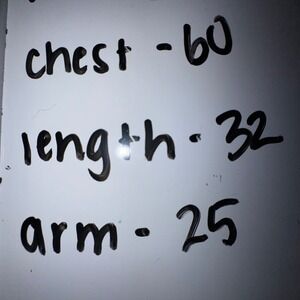 chest - 60
length - 32
arm - 25